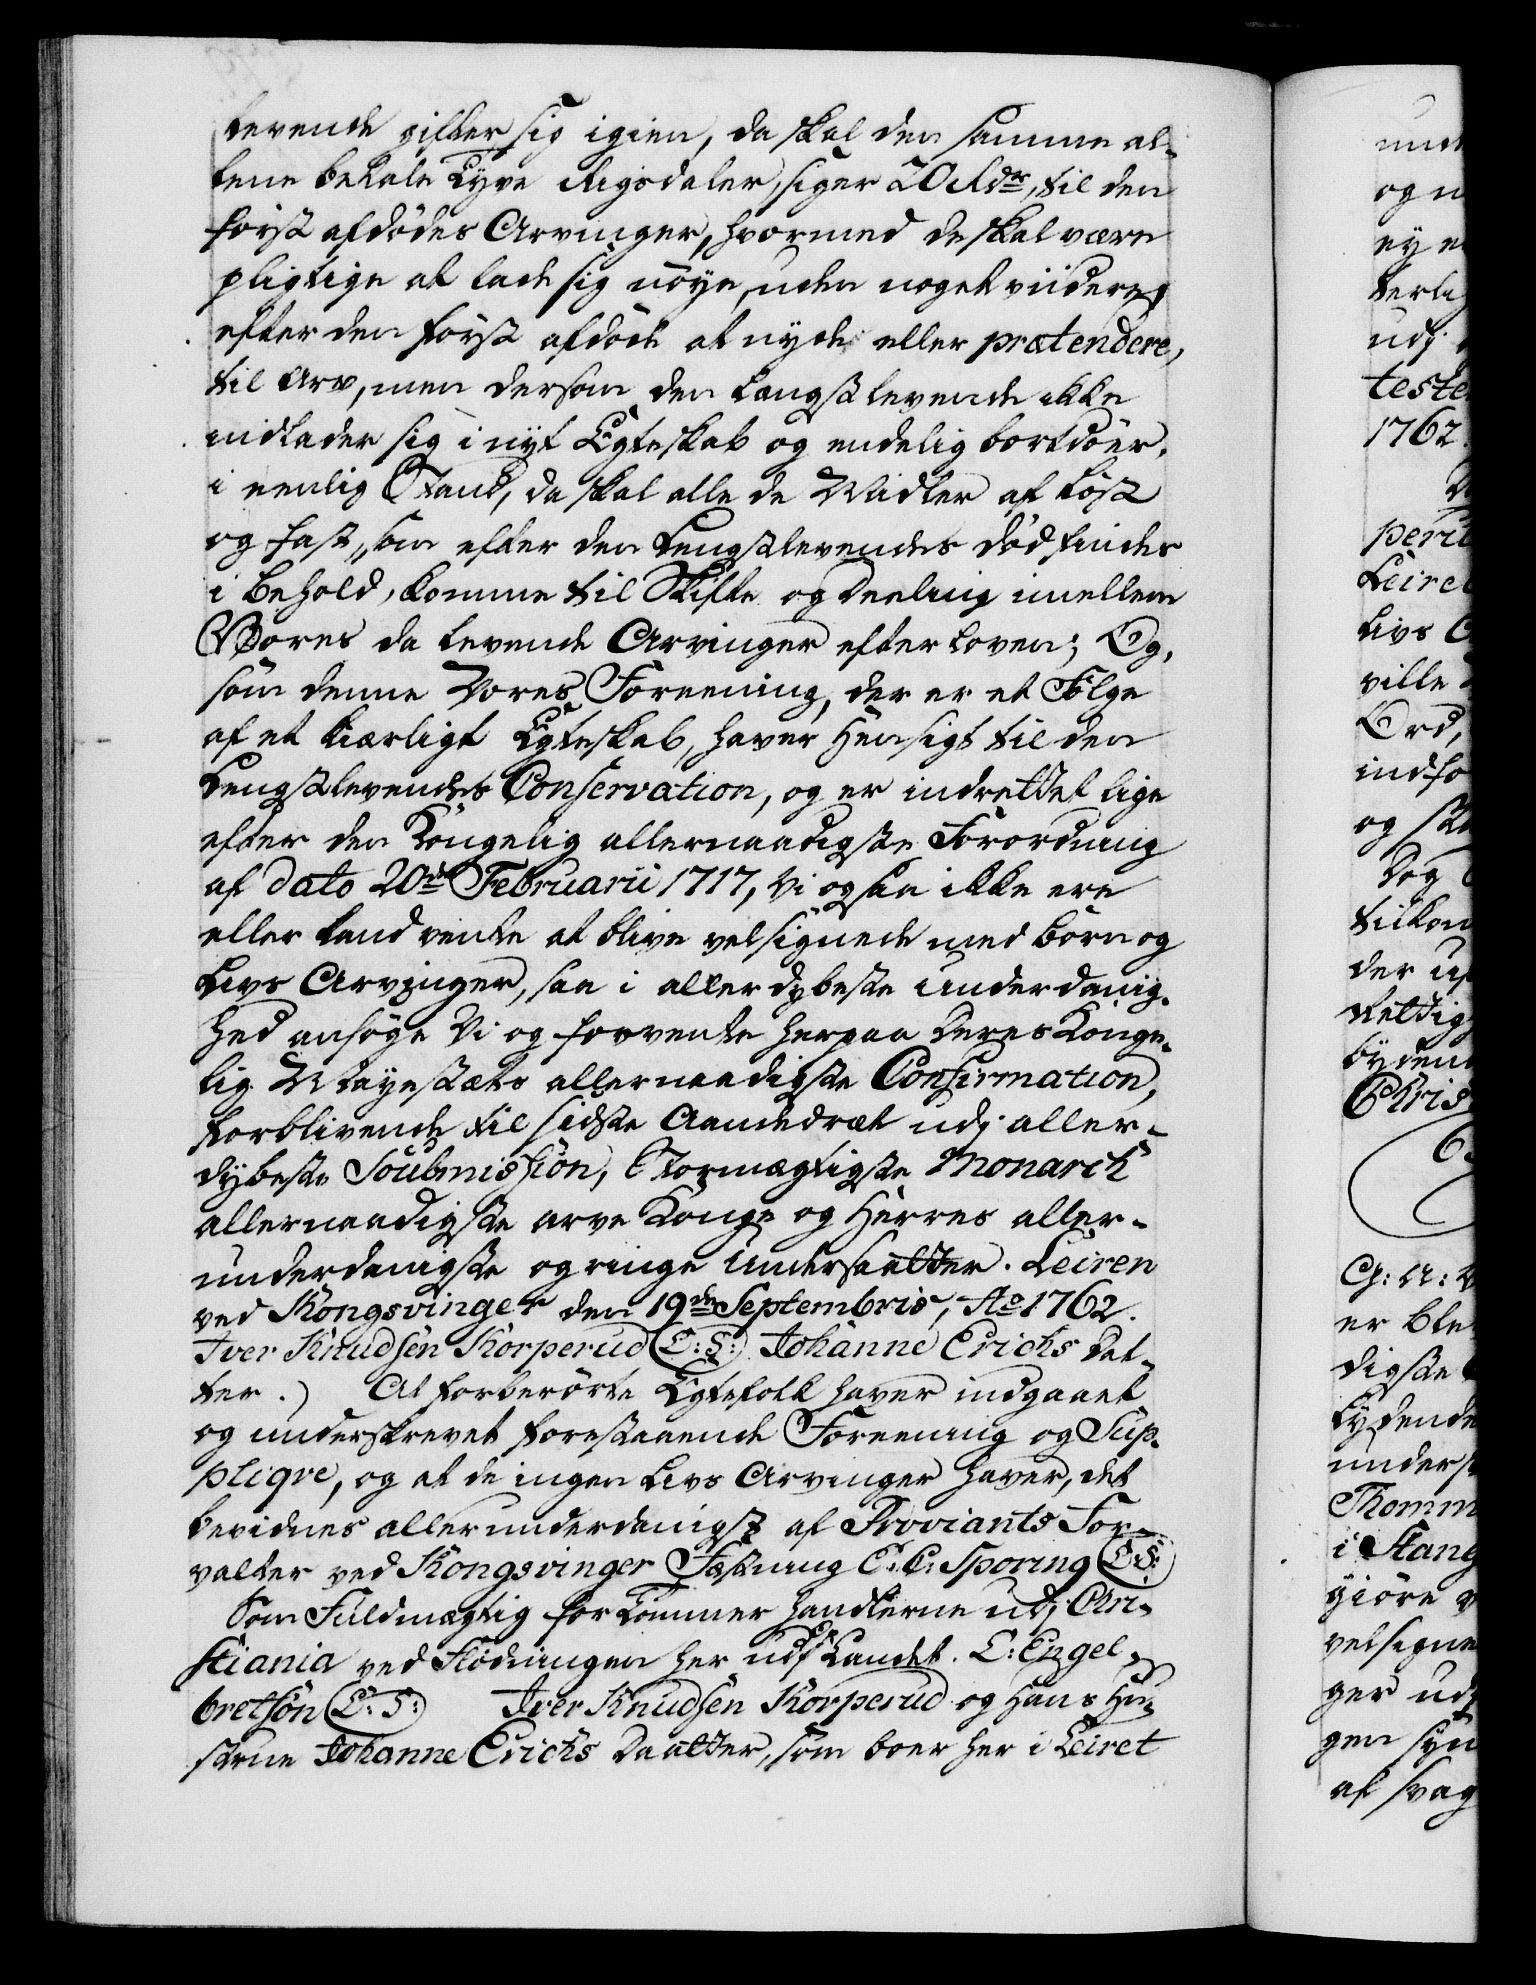 levende gifter sig igien, da skal den samme al-
lene betale Tyve Rigsdaler, siger 20 Rdr, til den
først afdødes Arvinger, hvormed de skal være
pligtige at lade sig nøye, uden noget viidere
efter den først afdøde at nyde eller prætendere,
til Arv, men dersom den længstlevende ikke
indlader sig i nyt Egteskab og endelig bortdøer
i eenlig Stand, da skal alle de Midler af løst
og fast, som efter den Længstlevendes død findes
i behold, komme til Skifte og deeling imellem
Vores da levende Arvinger efter Loven; Og,
som denne Vores Foreening, der er et Følge
af et kiærligt Egteskab, haver Hensigt til den
Længstlevendes Conservation, og er indrettet lige
efter den Kongelig allernaadigste Forordning
af dato 20de Februarii 1717, Vi ogsaa ikke ere
eller kand vente at blive velsignede med børn og
Livs Arvinger, saa i allerdybeste underdanig-
hed ansøge Vi og forvente herpaa Deres Konge-
lig Mayestæts allernaadigste Confirmation,
forblivende til sidste Aandedræt udj aller-
dybeste Soubmission, Stormægtigste Monarch
allernaadigste arve Konge og Herres aller-
underdanigste og ringe Undersaatter. Leiren
ved Kongsvinger den 19de Septembris, Ao 1762.
Iver Knudsen Korperud (L:S:) Johanne Erichs Dat-
ter.) At forberørte Egtefolk haver indgaaet
og underskrevet forestaaende Foreening og Sup-
pliqve, og at de ingen Livs Arvinger haver, det
bevidnes allerunderdanigst af Proviants For-
valter ved Kongsvinger Fæstning C: C: Sporing (L:S:)
Som Fuldmægtig for Tømmer Handlerne udj Chri-
stiania ved Flødningen her udj Landet. C: Engel-
bretsøn (L: S:) Iver Knudsen Korperud og Hans Hu-
strue Johanne Erichs Daatter, som boer her i Leiret